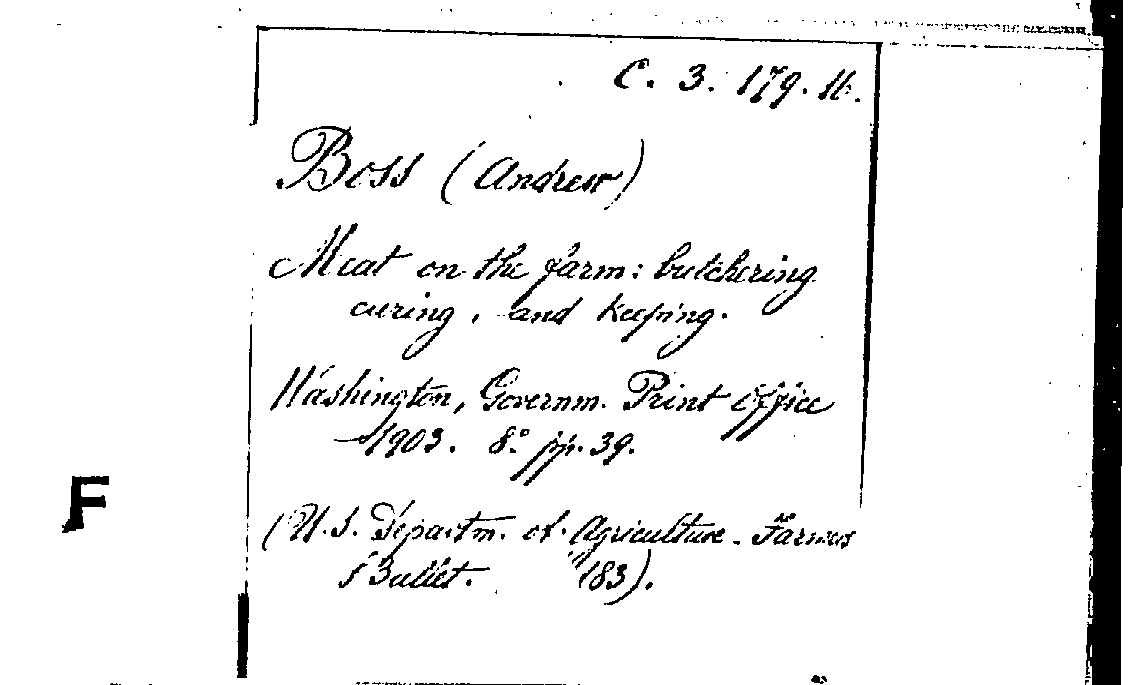 C. 3. 179. 16.
Boss (Andrew)
Meat on the farm: butchering
curing, and keeping.
Washington, Governm. Print Office
1903. 8° pp. 39.
F
(U.S. Departm. of Agriculture. Farmers
Bullet. 183).